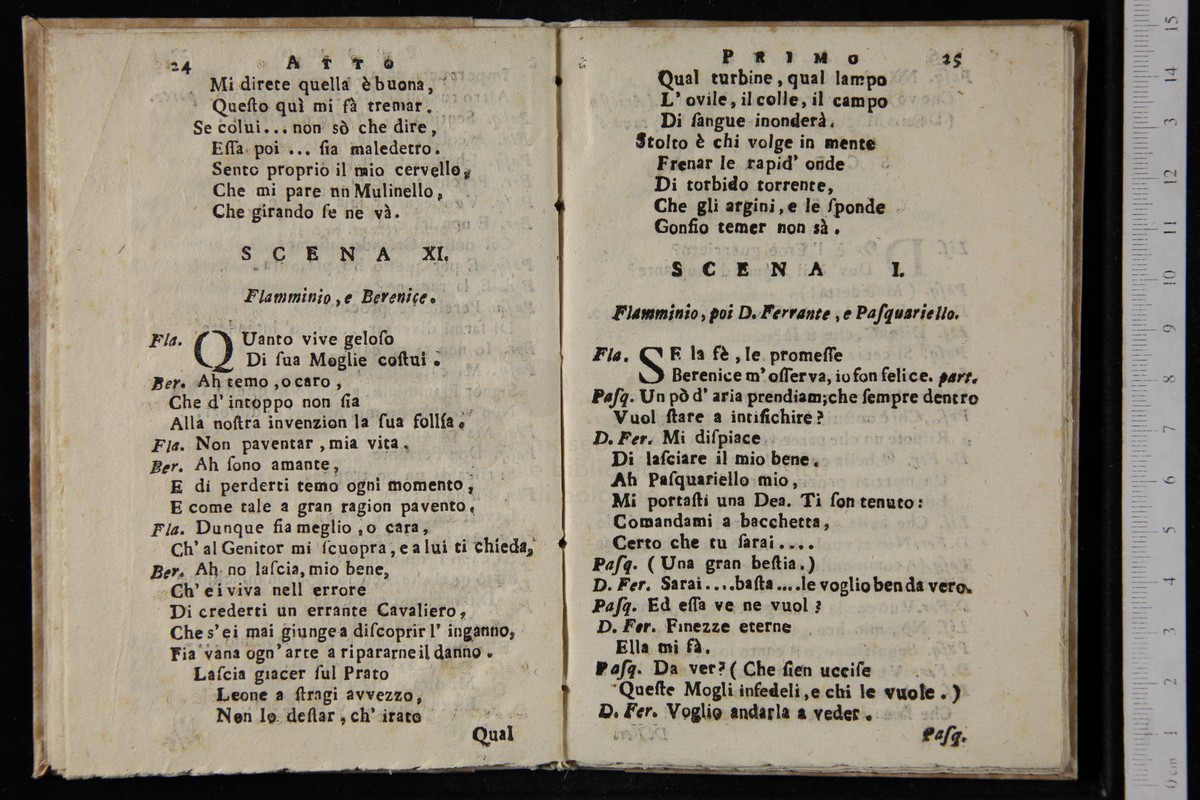 24 ATTO
Mi direte quella è buona,
Queſto quì mi fà tremar.
Se colui... non sò che dire,
Eſſa poi ... ſia maledetto.
Sento proprio il mio cervello,
Che mi pare nn Mulinello,
Che girando ſe ne và.
SCENA XI.
Flamminio, e Berenice.
Fla. QUanto vive geloſo
Di ſua Moglie coſtui.
Ber. Ah temo, o caro,
Che d' intoppo non ſia
Alla noſtra invenzion la ſua follía.
Fla. Non paventar, mia vita.
Ber. Ah ſono amante,
E di perderti temo ogni momento,
E come tale a gran ragion pavento.
Fla. Dunque ſia meglio, o cara,
Ch' al Genitor mi ſcuopra, e a lui ti chieda,
Ber. Ah no laſcia, mio bene,
Ch' ei viva nell errore
Di crederti un errante Cavaliero,
Che s' ei mai giunge a diſcoprir l' inganno,
Fia vana ogn' arte a ripararne il danno.
Laſcia giacer ſul Prato
Leone a ſtragi avvezzo,
Non lo deſtar, ch' irato
Qual
PRIMO 25
Qual turbine, qual lampo
L' ovile, il colle, il campo
Di ſangue inonderà.
Stolto è chi volge in mente
Frenar le rapid' onde
Di torbido torrente,
Che gli argini, e le ſponde
Gonfio temer non sà.
SCENA I.
Flamminio, poi D. Ferrante, e Paſquariello.
Fla. SE la fè, le promeſſe
Berenice m' oſſerva, io ſon felice. part.
Paſq. Un pò d' aria prendiam; che ſempre dentro
Vuol ſtare a intiſichire?
D. Fer. Mi diſpiace
Di laſciare il mio bene.
Ah Paſquariello mio,
Mi portaſti una Dea. Ti ſon tenuto:
Comandami a bacchetta,
Certo che tu ſarai....
Paſq. (Una gran beſtia.)
D. Fer. Sarai....baſta.....le voglio ben da vero.
Paſq. Ed eſſa ve ne vuol?
D. Fer. Finezze eterne
Ella mi fà.
Paſq. Da ver? (Che ſien ucciſe
Queſte Mogli infedeli, e chi le vuole.)
D. Fer. Voglio andarla a veder.
Paſq.
0 cm 1 2 3 4 5 6 7 8 9 10 11 12 13 14 15